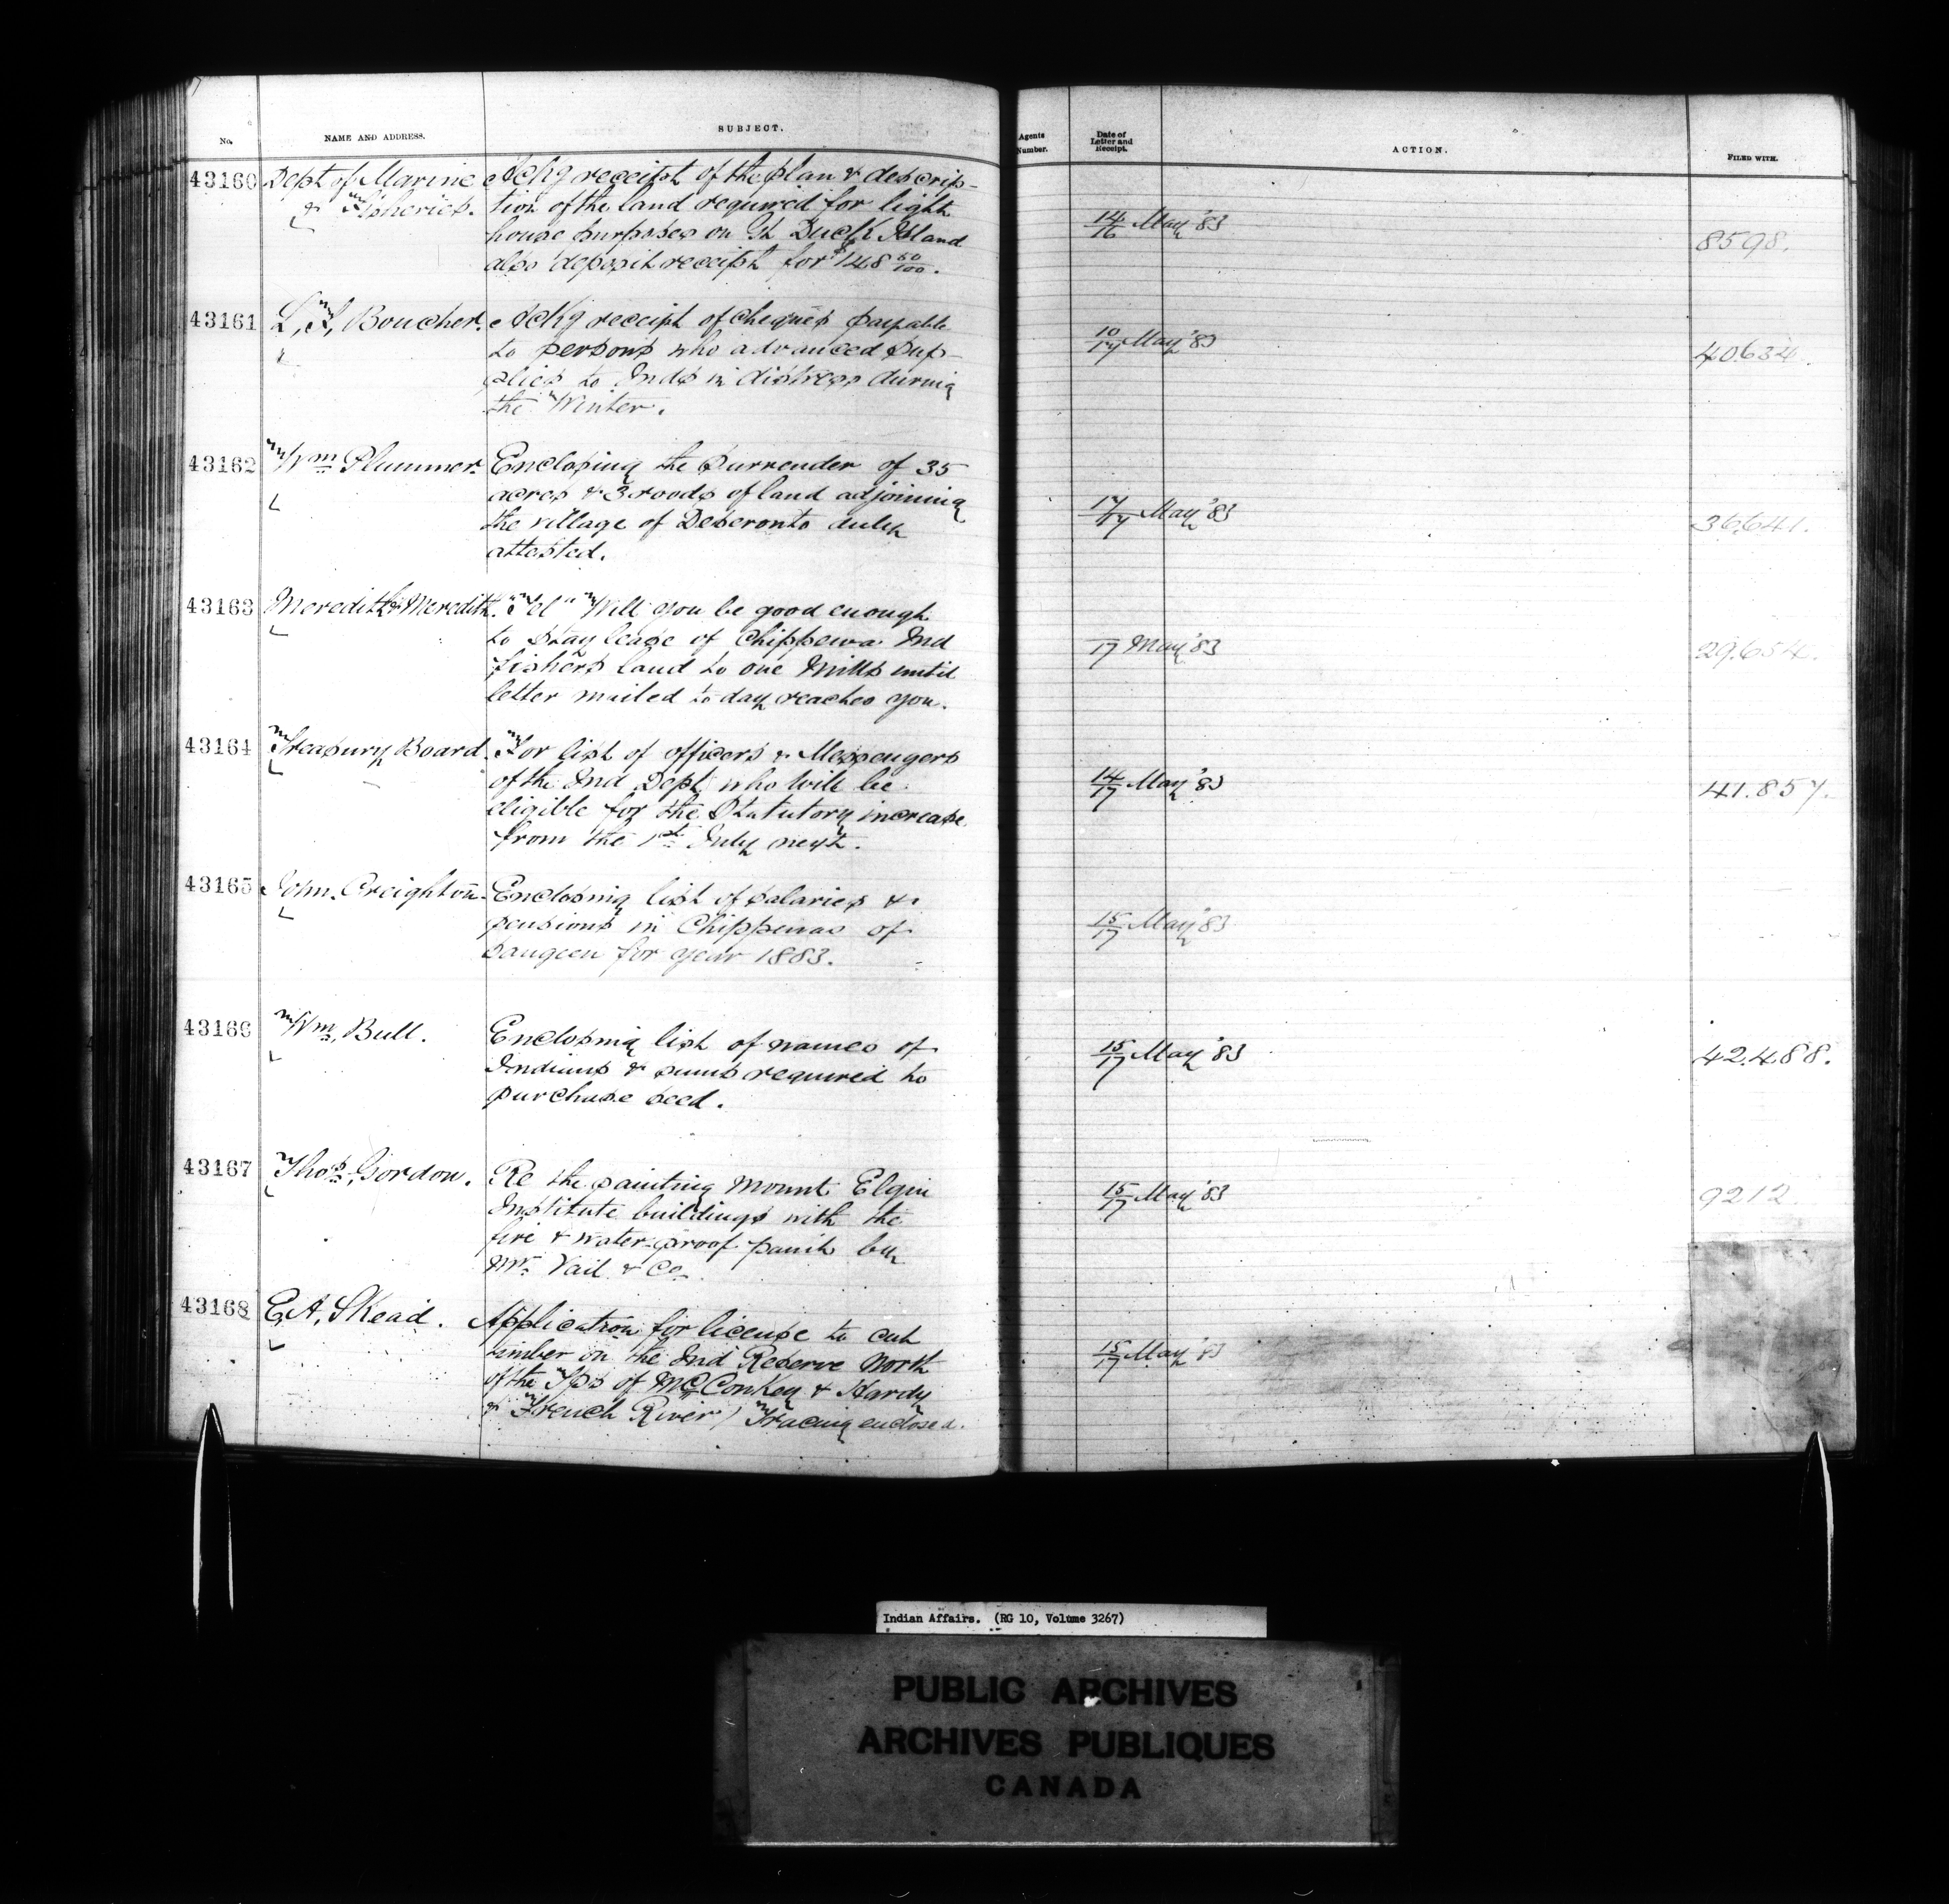 No. NAME AND ADDRESS. SUBJECT. Agents Number. Date of Letter and Receipt. ACTION. FILED WITH.
43160 Dept of Marine & Fisheries.
Ackg receipt of the plan & descrip-
tion of the land required for light
house purposes on Gt Duck Island
also deposit receipt for $148 50/100.
14/16 May '83
8598.
43161 L, F, Boucher.
Ackg receipt of cheques payable
to persons who advanced sup-
plies to Inds in distress during
the Winter.
10/17 May '83
40634.
43162 Wm Plummer.
Enclosing the surrender of 35
acres & 3 roods of land adjoining
the village of Deseronto duly
attested.
17/17 May '83
36641.
43163 Meredith & Meredith.
"Tel" Will you be good enough
to stay lease of Chippewa Ind
Fishers land to one Mills until
letter mailed to day reaches you.
17 May '83
29.654.
43164 Treasury Board.
For list of officers & Messengers
of the Ind Dept who will be
eligible for the Statutory increase
from the 1st July next.
14/17 May '83
41.857.
43165 John. Creighton.
Enclosing list of salaries &
pensions in Chippewas of
Saugeen for year 1883.
15/17 May '83
43166 Wm, Bull.
Enclosing list of names of
Indians & sums required to
purchase seed.
15/17 May '83
42.488.
43167 Thos, Gordon.
Re the painting Mount Elgin
Institute buildings with the
fire & water-proof paint by
Mr. Vail & Co.
15/17 May '83
9212.
43168 E, A, Skead.
Application for license to cut
timber on the Ind Reserve North
of the Tps of McConkey & Hardy
& French River) Tracing enclosed.
15/17 May '83
Indian Affairs. (RG 10, Volume 3267)
PUBLIC ARCHIVES
ARCHIVES PUBLIQUES
CANADA